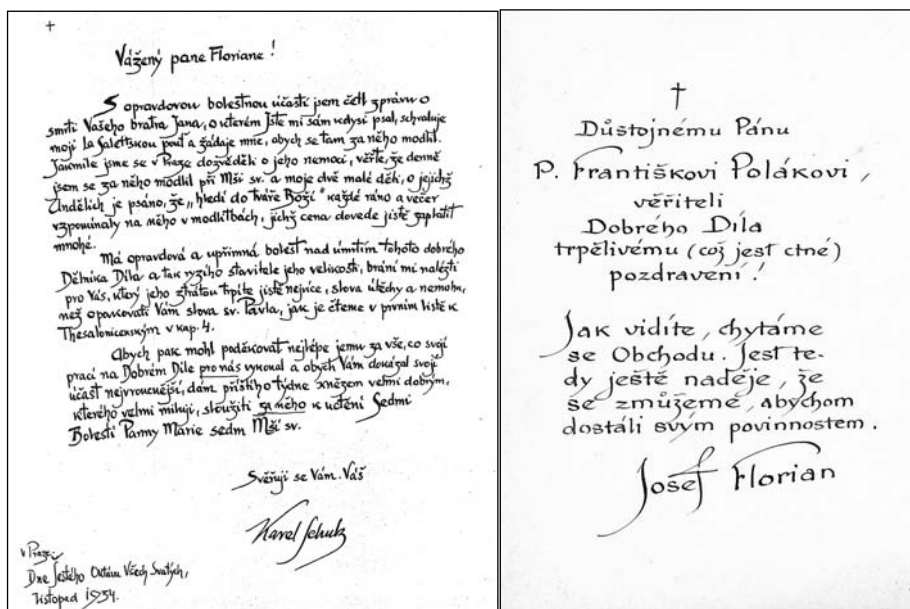 +
Vážený pane Floriane!
S opravdovou bolestnou účastí jsem četl zprávu o
smrti Vašeho bratra Jana, o kterém Jste mi sám kdysi psal, schvaluje
moji La Salettskou pouť a žádaje mne, abych se tam za něho modlil.
Jakmile jsme se v Praze dozvěděli o jeho nemoci, věřte, že denně
jsem se za něho modlil při Mši sv. a moje dvě malé děti, o jejichž
Andělích je psáno, že „hledí do tváře Boží" každé ráno a večer
vzpomínaly na něho v modlitbách, jichž cena dovede jistě zaplatit
mnohé.
Má opravdová a upřímná bolest nad úmrtím tohoto dobrého
Dělníka Díla a tak ryzího stavitele jeho velikosti, brání mi nalézti
pro Vás, který jeho ztrátou trpíte jistě nejvíce, slova útěchy a nemohu,
než opakovati Vám slova sv. Pavla, jak je čteme v prvním listě k
Thesalonicenským v kap. 4.
Abych pak mohl poděkovat nejlépe jemu za vše, co svojí
prací na Dobrém Díle pro nás vykonal a abych Vám dokázal svoje
účast nejvroucnější, dám příštího týdne knězem velmi dobrým,
kterého velmi miluji, sloužiti za něho k uctění Sedmi
Bolestí Panny Marie sedm Mší sv.
Svěřuji se Vám. Váš
Karel Schulz
v Praze,
Dne Šestého Oktávu Všech Svatých,
listopad 1934.
†
Důstojnému Pánu
P. Františkovi Polákovi,
věřiteli
Dobrého Díla
trpělivému (což jest ctné)
pozdravení!
Jak vidíte, chytáme
se Obchodu. Jest te-
dy ještě naděje, že
se zmůžeme, abychom
dostáli svým povinnostem.
Josef Florian